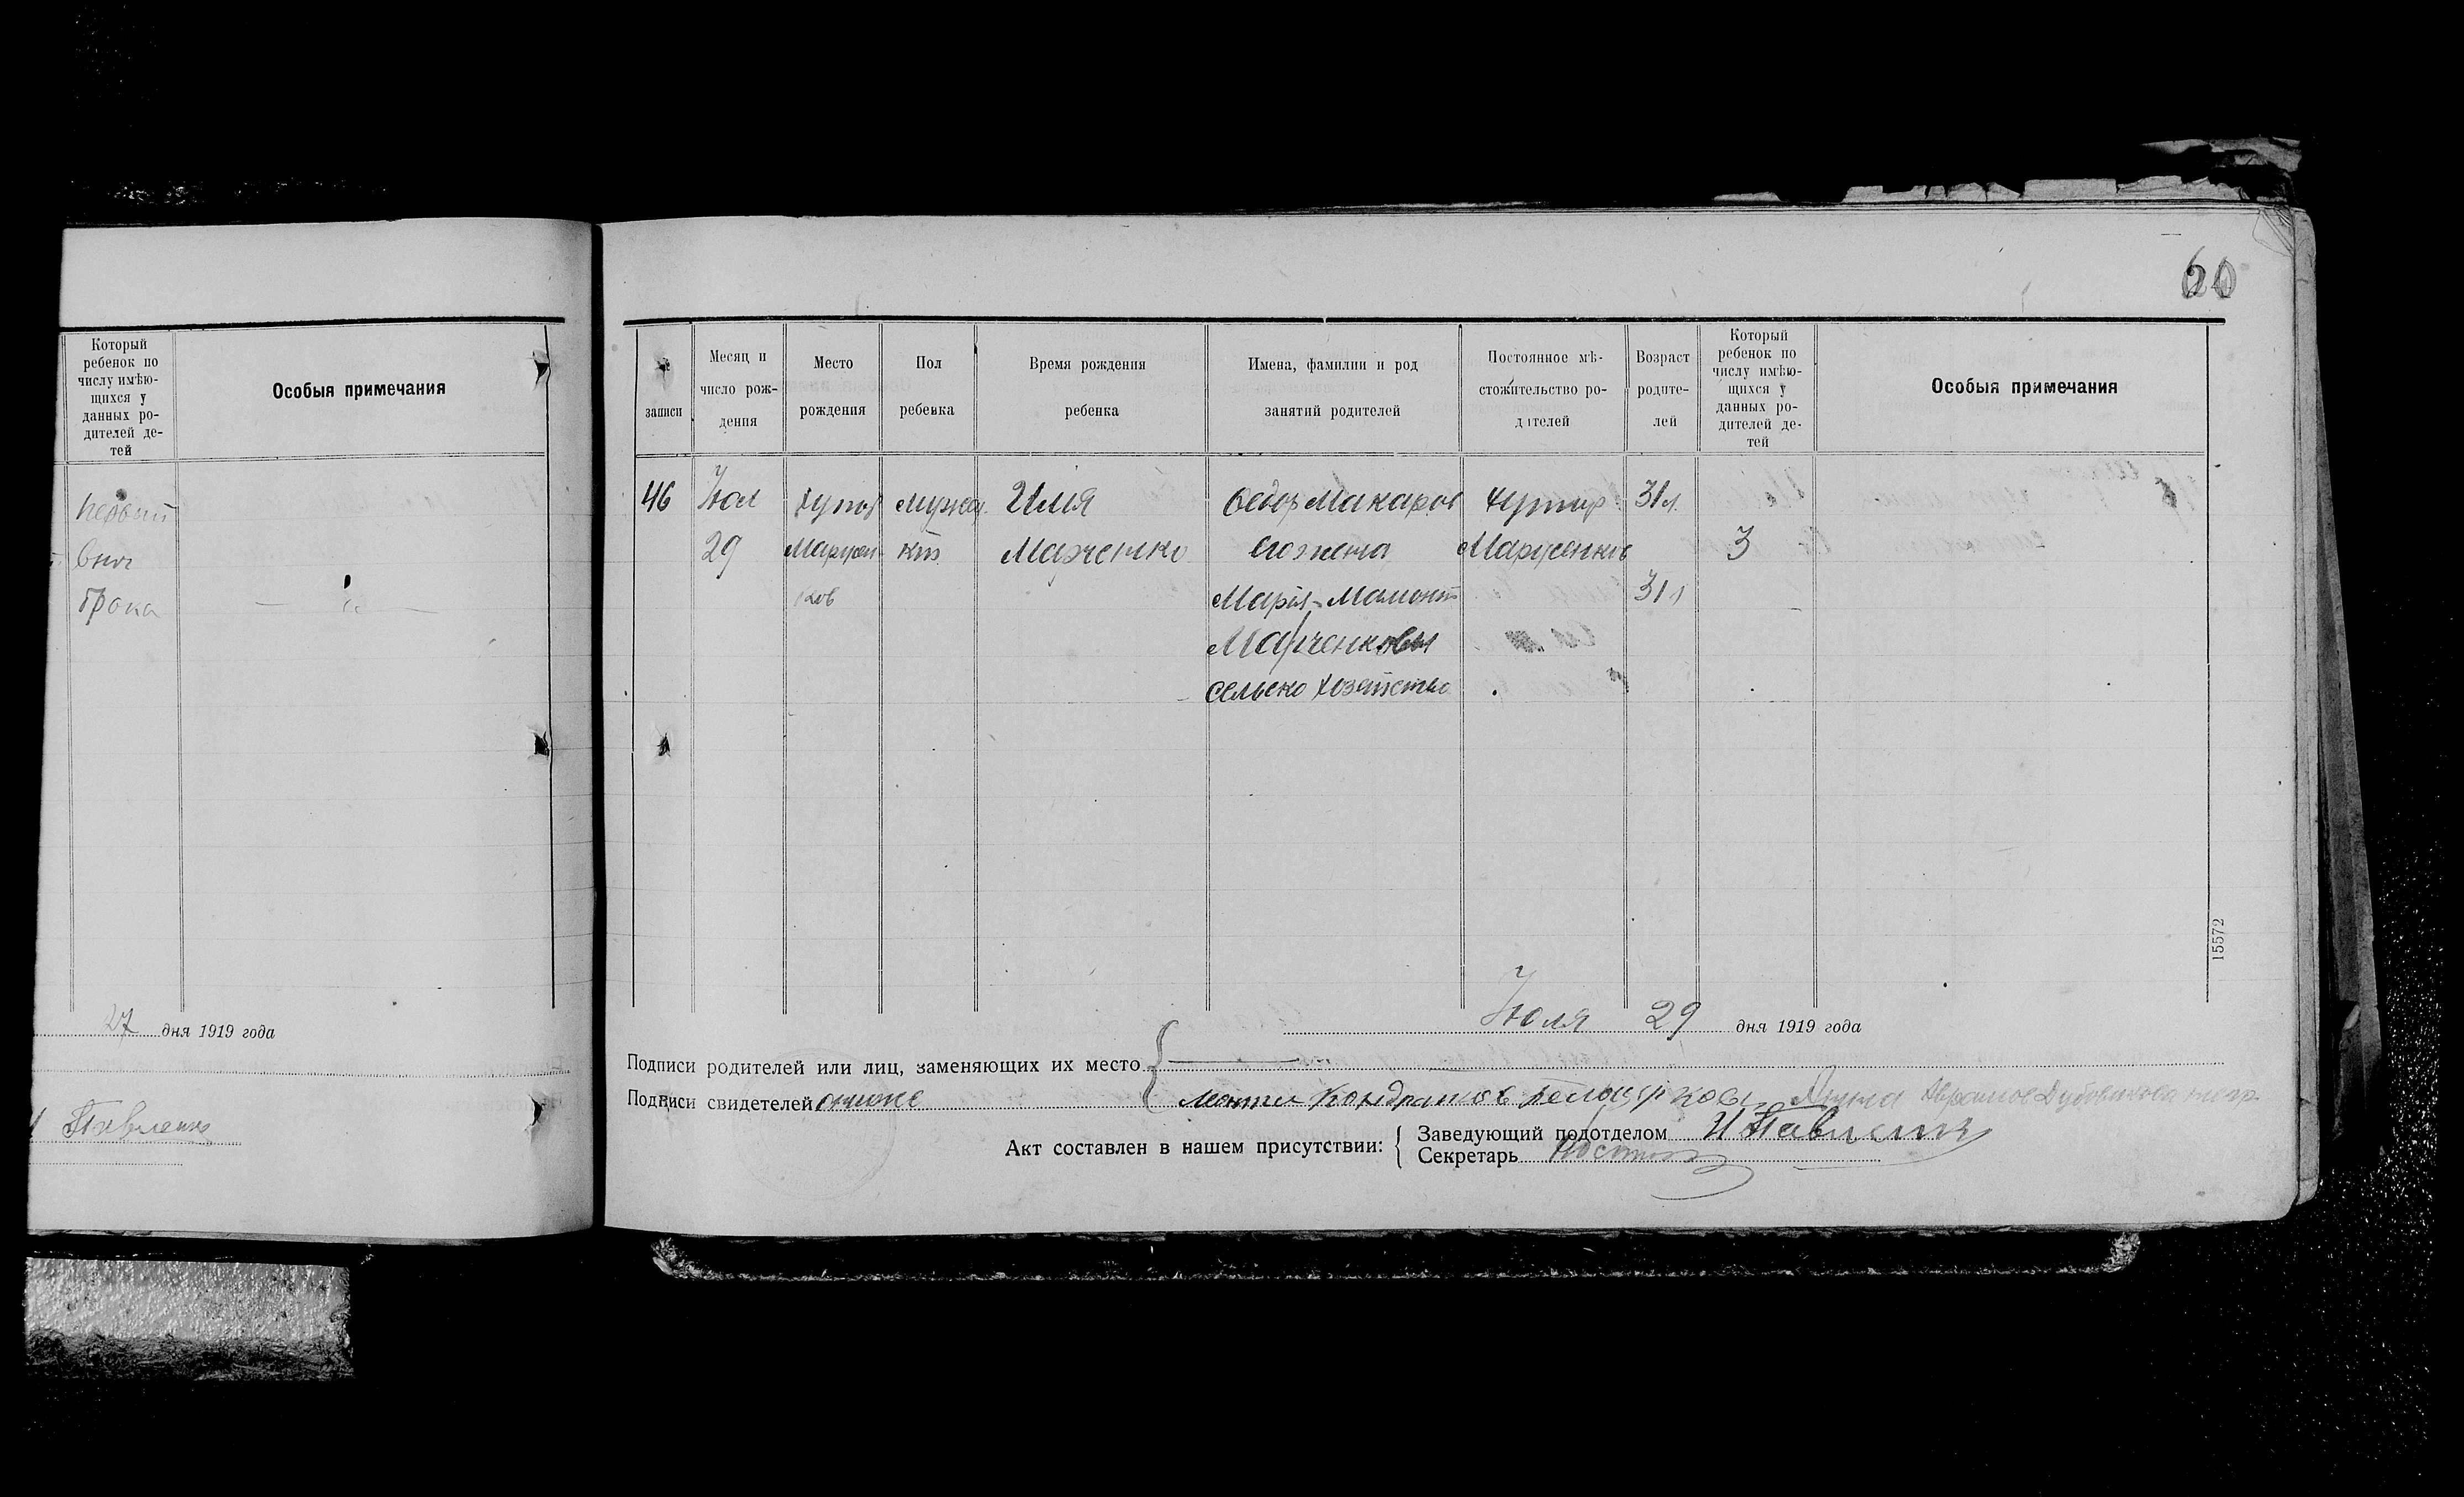 Который
ребенок по
числу имѣю-
щихся у
данных ро-
дителей де-
тей
Особыя примечания
первый
27 дня 1919 года
Павленко
60
записи
Месяц и
число рож-
дения
Место
рождения
Пол
ребенка
Время рождения
ребенка
Имена, фамилии и род
занятий родителей
Постоянное мѣ-
стожительство ро-
дителей
Возраст
родите-
лей
Который
ребенок по
числу имѣю-
щихся у
данных ро-
дителей де-
тей
Особыя примечания
46 Июл Хутор мужс Илия Федор Макаров Хутор 31 л.
29 Марусен кій Марченко его жена Марусенков 3
ков Марія 31 л
Марченковы
сельско хозяйство
15572
Июля 29 дня 1919 года
Подписи родителей или лиц, заменяющих их место
Подписи свидетелей Кондратов
Акт составлен в нашем присутствии:
Заведующий подотделом И Павленко
Секретарь